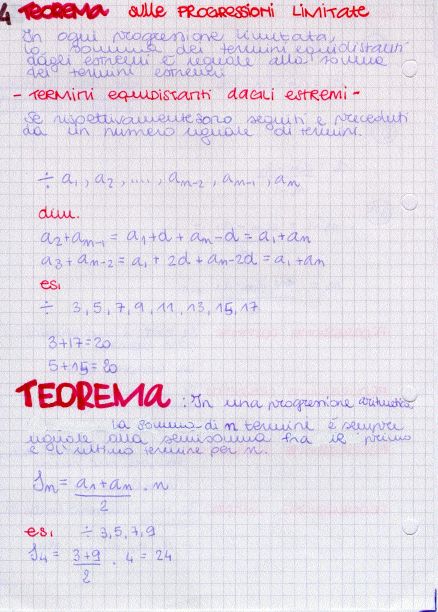 4 TEOREMA sulle PROGRESSIONI LIMITATE
In ogni progressione limitata,
la somma dei termini equidistanti
dagli estremi è uguale alla somma
dei termini estremi
- TERMINI EQUIDISTANTI DAGLI ESTREMI -
Se rispettivamente sono seguiti e preceduti
da un numero uguale di termini.
÷ a1, a2, ...., an-2, an-1, an
dim.
a2+an-1 = a1+d+an-d = a1+an
a3+an-2 = a1+2d+an-2d = a1+an
es.
÷ 3, 5, 7, 9, 11, 13, 15, 17
3+17=20
5+15=20
TEOREMA : In una progressione aritmetica
la somma di n termine è sempre
uguale alla semisomma fra il primo
e l'ultimo termine per n.
Sn = a1+an . n
2
es. ÷ 3, 5, 7, 9
S4 = 3+9 . 4 = 24
2